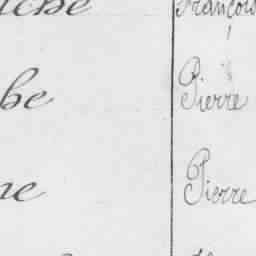 François
be Pierre
ne Pierre